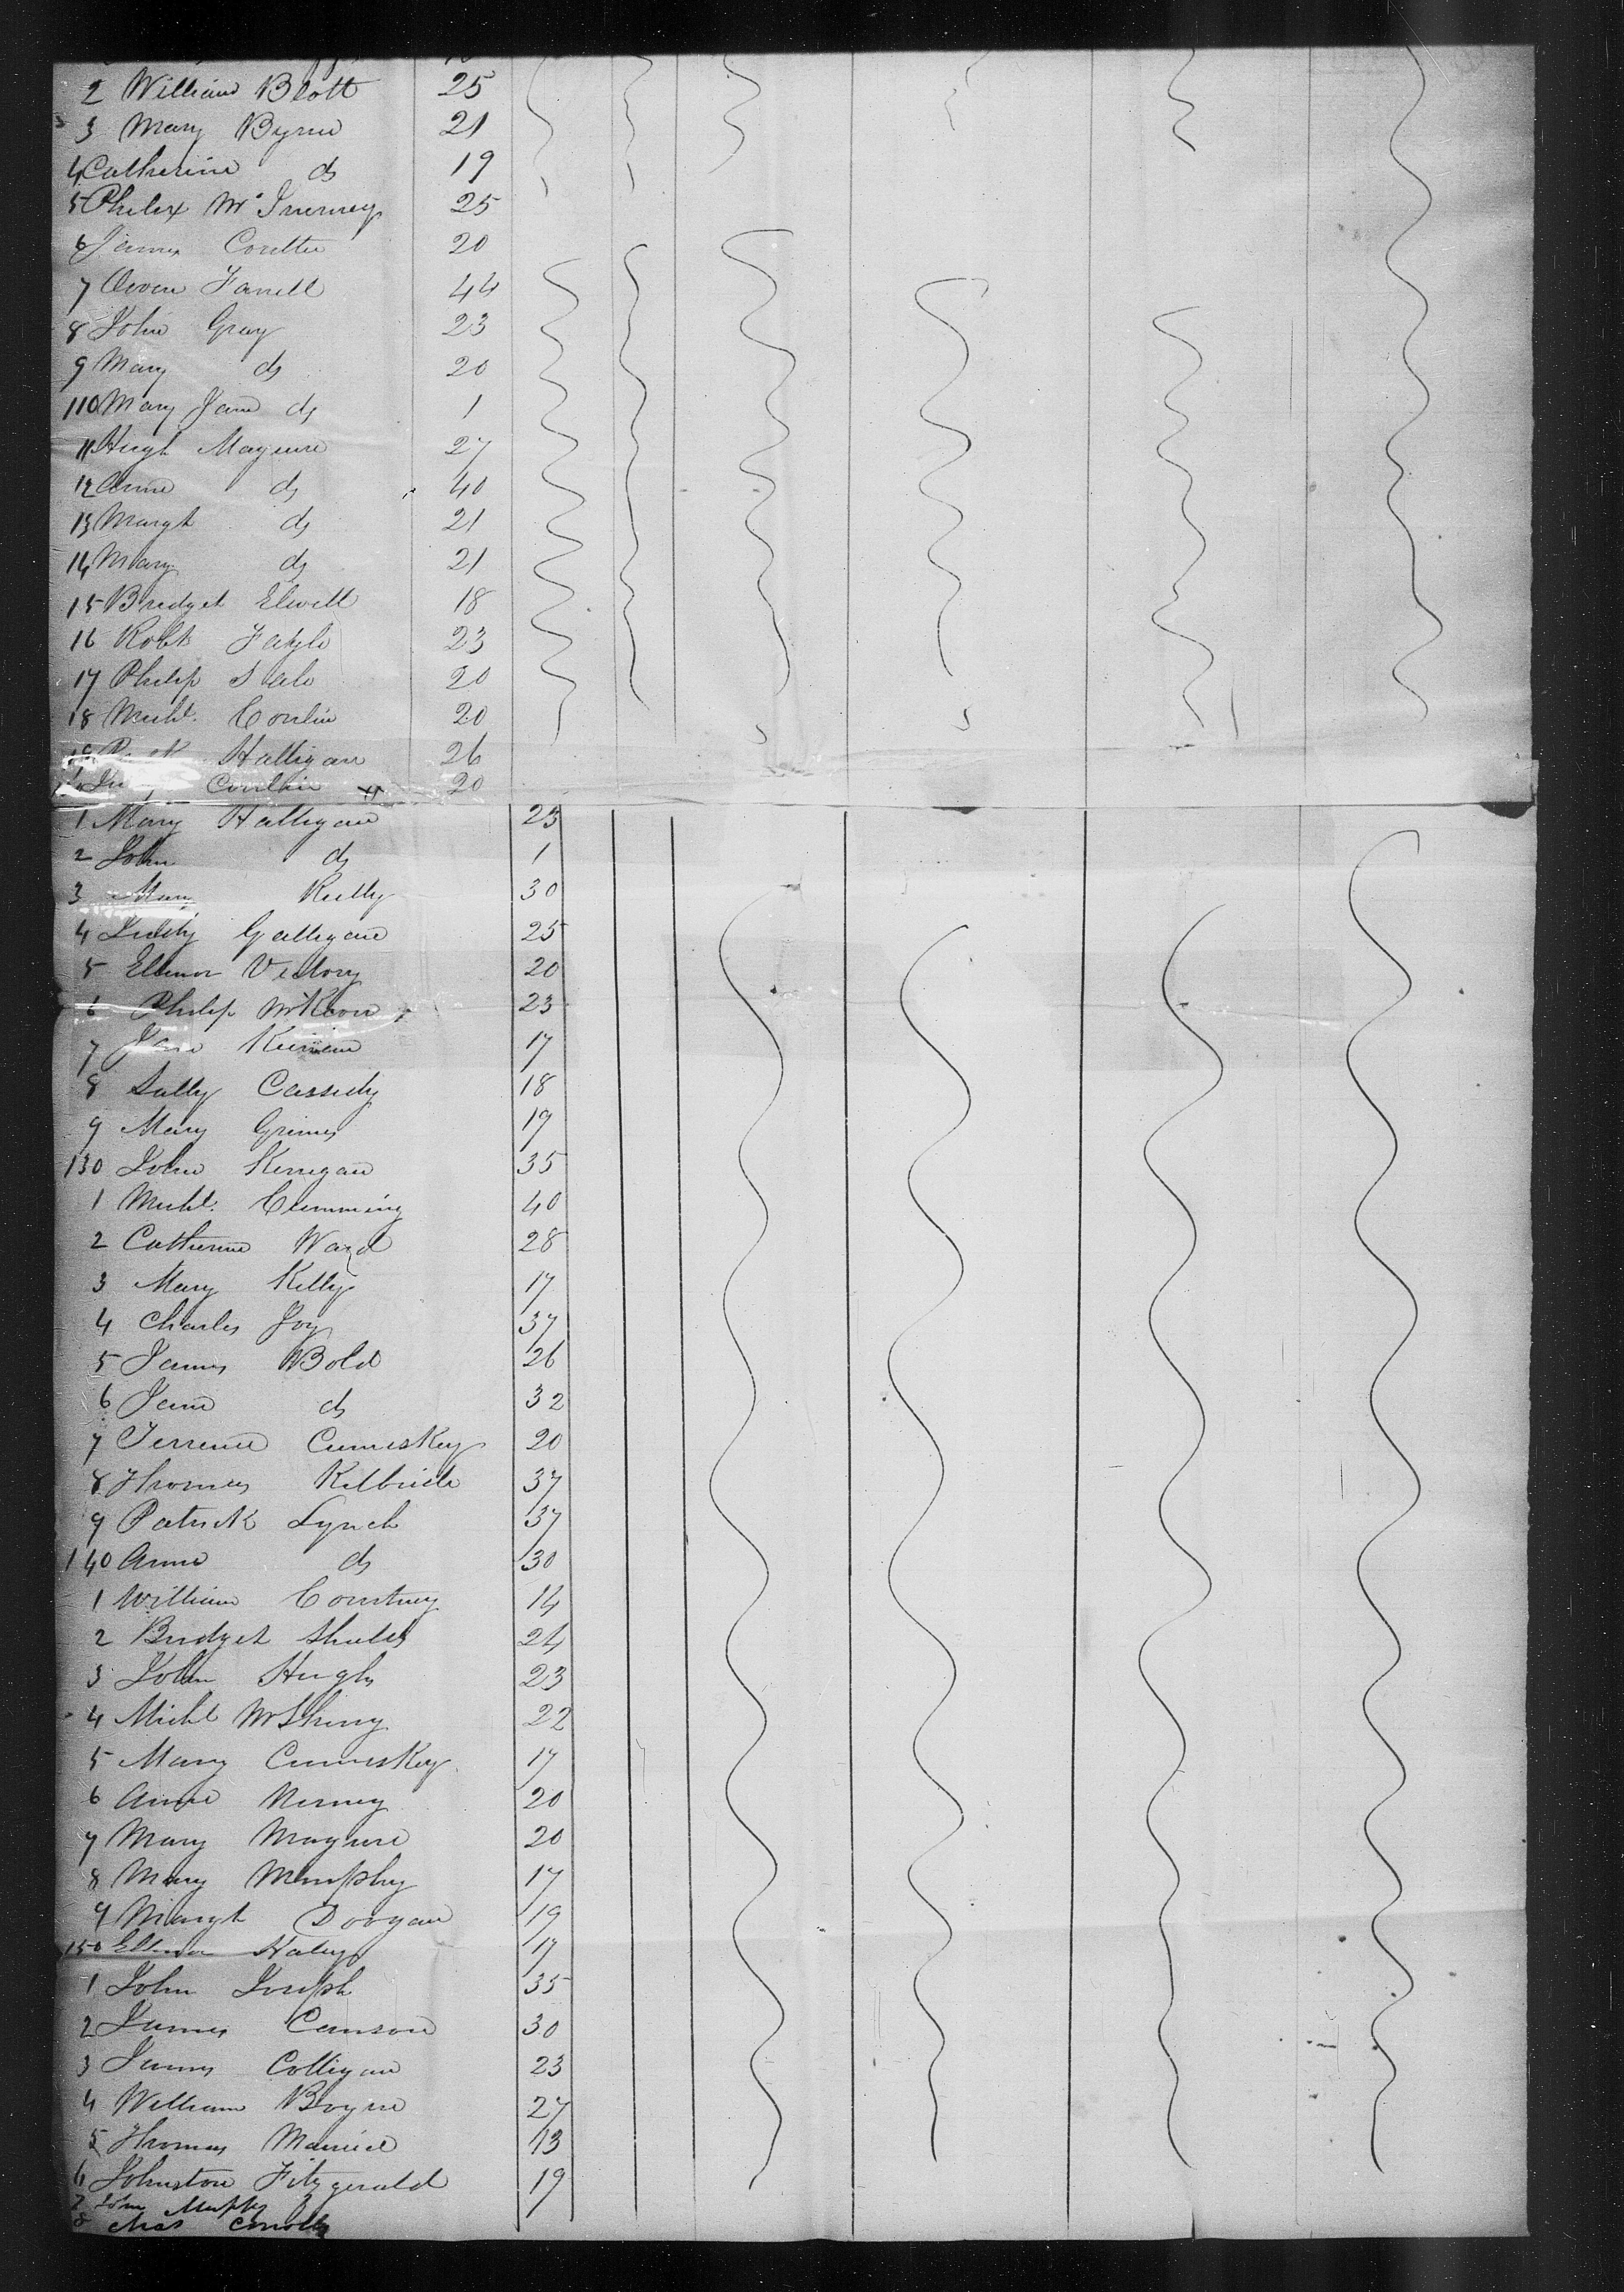 2 William Blott 25
3 Mary Byrne 21
4 Catherine do 19
5 Philix Mc Inerney 25
6 James Coulter 20
7 Owen Farrell 44
8 John Gray 23
9 Mary do 20
110 Mary Jane do 1
11 Hugh Maguire 27
12 Anne do 40
13 Margt do 21
14 Mary do 21
15 Bridget Elwell 18
16 Robt 23
17 Philip 20
18 Michl. Conlin 20
19 Halligan 26
20
1 Mary Halligan 23
2 John do 1
3 Mary Reilly 30
4 Galligan 25
5 Ellenor Victory 20
6 Philip McKeon 23
7 Jane 17
8 Sally Cassidy 18
9 Mary Grimes 19
130 John Kerrigan 35
1 Michl. Cumming 40
2 Catherine Ward 28
3 Mary Kelly 17
4 Charles Joy 37
5 James Bold 26
6 Jane do 32
7 Terrence Cumiskey 20
8 Thomas Kilbride 37
9 Patrick Lynch 37
140 Anne do 30
1 William Courtney 14
2 Bridget Shields 24
3 John Hughs 23
4 Michl McShiny 22
5 Mary Cumiskey 17
6 Anne Nerney 20
7 Mary Maguire 20
8 Mary Murphy 17
9 Margt Doogan 19
150 Ellenor Haley 17
1 John Joseph 35
2 James Camson 30
3 James Colligan 23
4 William Boyne 27
5 Thomas 13
6 Johnston Fitzgerald 19
7 John Murphy
8 Chas Conolly